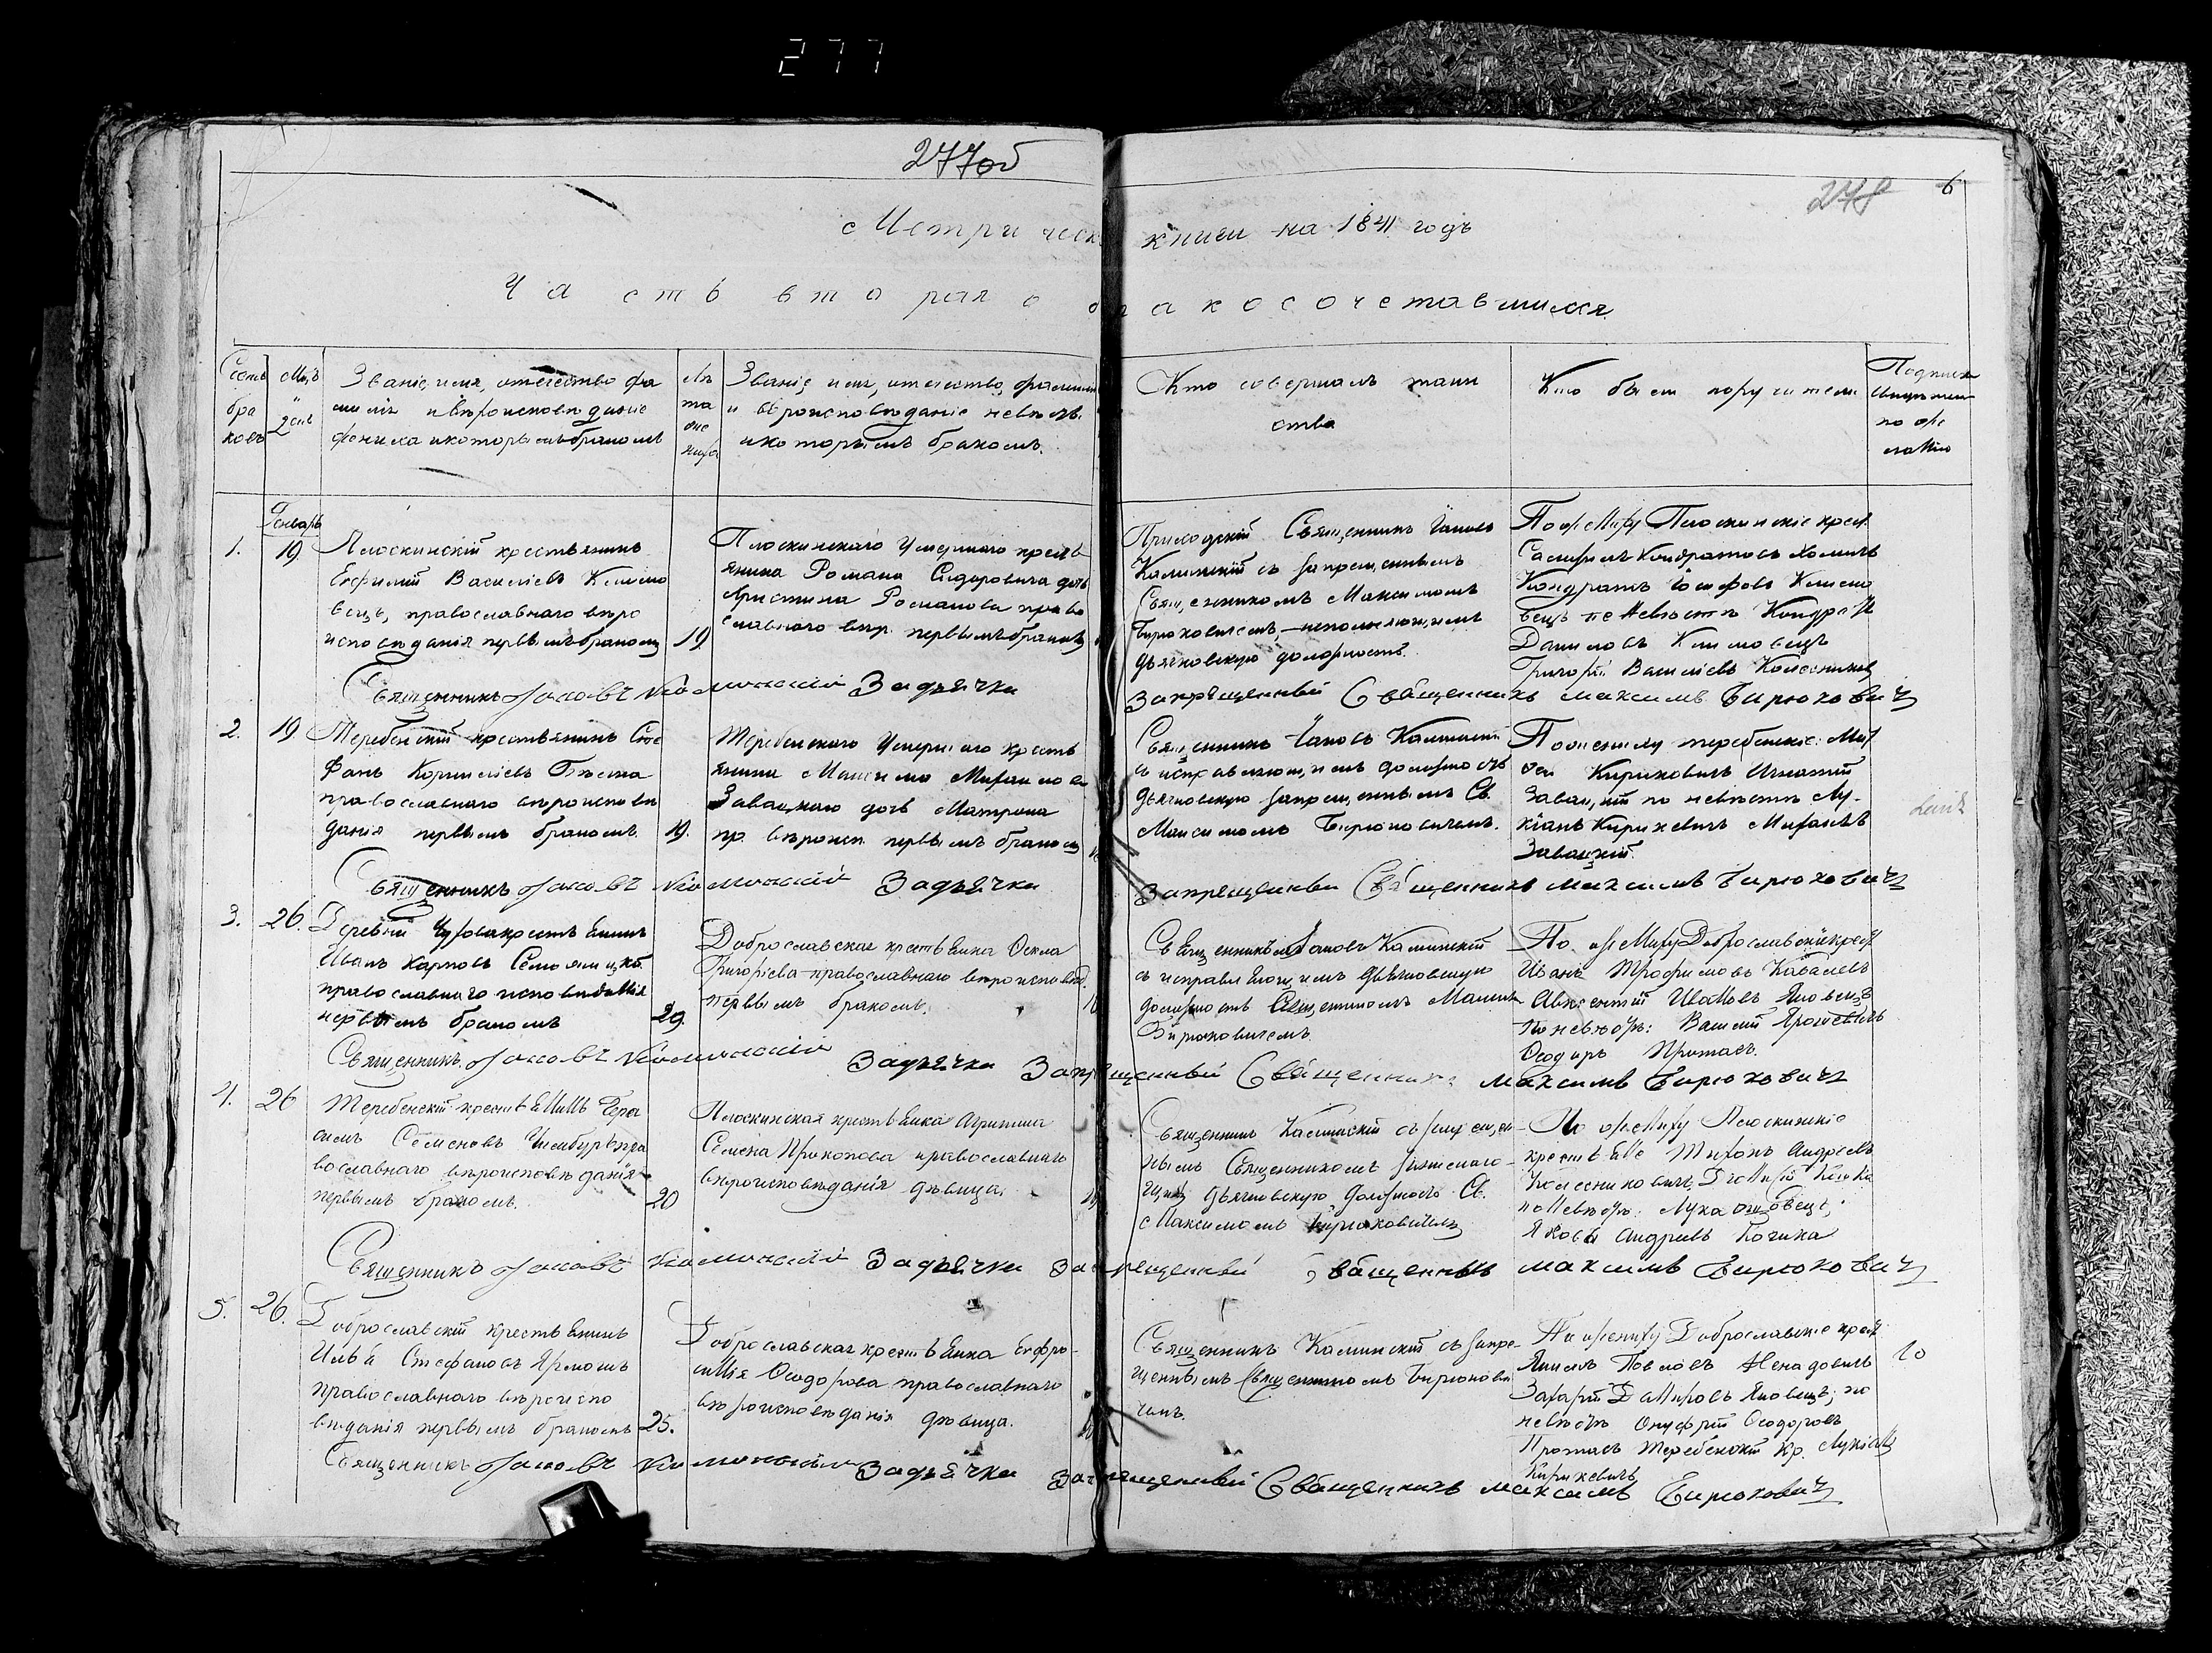 277
277об
278 6
Метрическ книги на 1841 годъ
Часть вторая о бракосочетавшихся
Счетъ бра ковъ
Мць и день
Званіе, имя, отечество фа
милія и вѣроисповѣданіе
жениха и которымъ бракомъ
лѣ та же ниха
Званіе, имя, отечество, фамилія
и вѣроисповѣданіе невѣсты
и которымъ бракомъ.
Кто совершалъ таин
ства
Кто были поручители
Генварь
1. 19
Плоскинскій крестьянинъ
Евфимій Василіевъ Климо
вецъ, православнаго вѣро
исповѣданія первымъ бракомъ
19
Плоскинскаго умершаго кресть
янина Романа Сидоровича дочь
Христина Романова право
славнаго вѣр. первымъ бракомъ
Приходскій Священникъ Іаковъ
Калинскій съ запрещеннымъ
Священникомъ Максимомъ
Бирюковичемъ, исполняющимъ
дьячковскую должность.
По жениху Плоскинскіе крест.
Кондратовъ
Кондратъ Іосифовъ Климо
вецъ по невѣстѣ Кондратъ
Даниловъ Климовецъ
Григорій Василіевъ Колесникови
Священникъ Іаковъ Калинскій За дьячка
Запрещенный Священникъ Максимъ Бирюковичъ
2. 19
Теребенскій крестьянинъ Сте
фанъ Корниліевъ
православнаго вѣроисповѣ
данія первымъ бракомъ
19.
Теребенскаго умершаго кресть
янина Михаилова
Завацкаго дочь Матрона
пр. вѣроисп. первымъ бракомъ
Священникъ Іаковъ Калинскій
съ исправляющимъ должность
дьячковскую запрещеннымъ Св.
Максимомъ Бирюковичемъ.
По жениху теребенскіе: Мат
фей Кириковичъ Игнатій
Завацкій по невѣстѣ Лу-
кіанъ Кирикевичъ Михаилъ
Завацкій.
Священникъ Іаковъ Калинскій За дьячка
Запрещенный Священникъ Максимъ Бирюковичъ
3. 26.
Деревни крестьянинъ
Иванъ Карповъ
православнаго исповѣданія
первымъ бракомъ
29.
Доброславская крестьянка Фекла
Григоріева православнаго вѣроисповѣд.
первымъ бракомъ.
Священникъ Іаковъ Калинскій
съ исправляющимъ дьячковскую
должность Священникомъ Максим
Бирюковичемъ.
По жениху Доброславскіе крест
Иванъ Трофимовъ Ковалевъ
Авксентій Ивановъ Яковецъ
по невѣстѣ: Василій Ярошевичъ
Феодоръ Протасъ.
Священникъ Іаковъ Калинскій За дьячка Запрещенный Священникъ Максимъ Бирюковичъ
4. 26
Теребенскій крестьянинъ Гера
симъ Семеновъ пра
вославнаго вѣроисповѣданія
первымъ бракомъ.
20
Плоскинская крестьянка Агрипина
Семена Прокопова православнаго
вѣроисповѣданія дѣвица.
Священникъ Калинскій съ запрещен-
нымъ Священникомъ
дьячковскую должность Св.
Максимомъ Бирюковичемъ
По жениху Плоскинскіе
крестьяне Тихонъ Андреевъ
Колесниковичъ,
по невѣстѣ: Лука
Яковъ Андреевъ
Священникъ Іаковъ Калинскій За дьячка Запрещенный Священникъ Максимъ Бирюковичъ
5. 26.
Доброславскій крестьянинъ
Илья Стефановъ Ярмошъ
православнаго вѣроиспо
вѣданія первымъ бракомъ
25.
Доброславская крестьянка Евфро-
синія Феодорова православнаго
вѣроисповѣданія дѣвица.
Священникъ Калинскій съ запре-
щеннымъ Священникомъ Бирюкови
чемъ.
По жениху Доброславскіе крест
Павловъ Ненадовичъ
Захарій Яковецъ; по
невѣстѣ Онуфрій Феодоровъ
Протасъ Теребенскій кр. Лукіанъ
Кирикевичъ
Священникъ Іаковъ Калинскій За дьячка Запрещенный Священникъ Максимъ Бирюковичъ